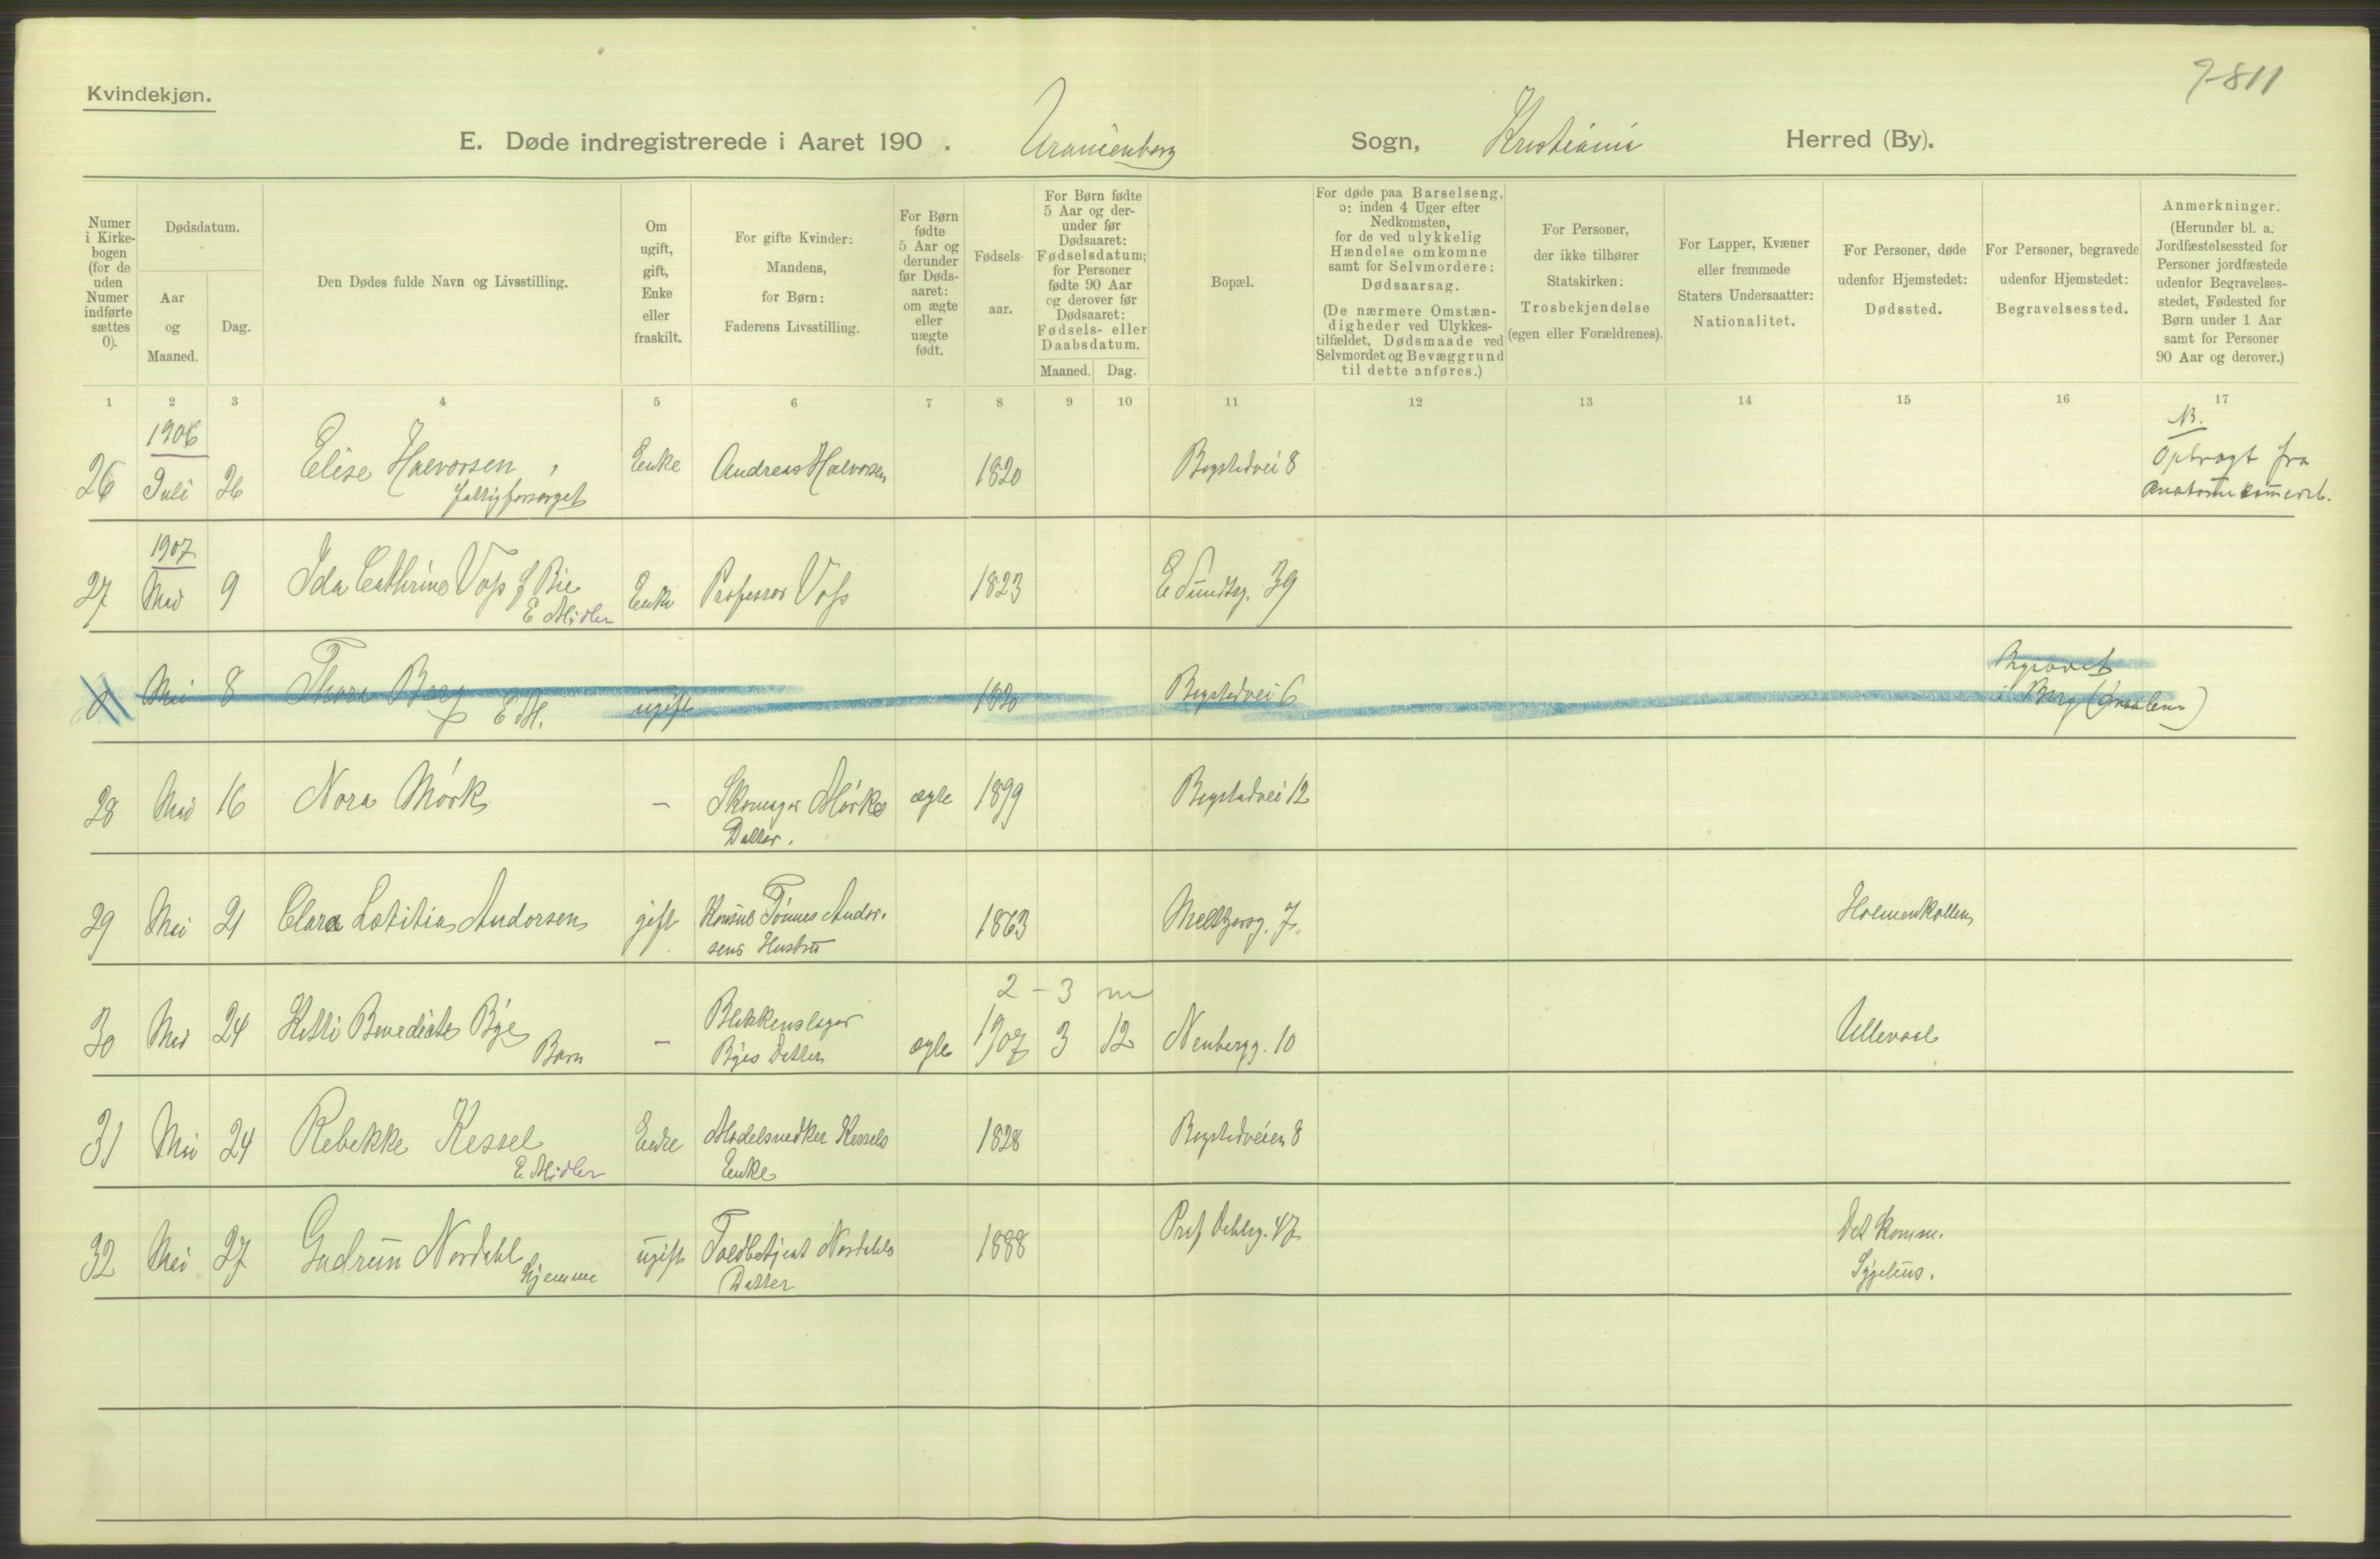 7-811
Kvindekjøn.
E. Døde indregistrerede i Aaret 190 . Uranienborg Sogn, Kristiania Herred (By).
Numer i Kirkebogen (for de uden Numer indførte sættes 0).
Dødsdatum.
Aar og Maaned.
Dag.
Den Dødes fulde Navn og Livsstilling.
Om ugift, gift, Enke eller fraskilt.
For gifte Kvinder: Mandens, for Børn: Faderens Livsstilling.
For Børn fødte 5 Aar og derunder før Dødsaaret: om ægte eller uægte født.
Fødselsaar.
For Børn fødte 5 Aar og derunder før Dødsaaret: Fødselsdatum; for Personer fødte 90 Aar og derover før Dødsaaret: Fødsels- eller Daabsdatum.
Maaned. Dag.
Bopæl.
For døde paa Barselseng, ɔ: inden 4 Uger efter Nedkomsten, for de ved ulykkelig Hændelse omkomne samt for Selvmordere: Dødsaarsag.
(De nærmere Omstændigheder ved Ulykkestilfældet, Dødsmaade ved Selvmordet og Bevæggrund til dette anføres.)
For Personer, der ikke tilhører Statskirken: Trosbekjendelse (egen eller Forældrenes).
For Lapper, Kvæner eller fremmede Staters Undersaatter: Nationalitet.
For Personer, døde udenfor Hjemstedet: Dødssted.
For Personer, begravede udenfor Hjemstedet: Begravelsessted.
Anmerkninger. (Herunder bl. a. Jordfæstelsessted for Personer jordfæstede udenfor Begravelsesstedet, Fødested for Børn under 1 Aar samt for Personer 90 Aar og derover.)
1 2 3 4 5 6 7 8 9 10 11 12 13 14 15 16 17
1906
26 Juli 26 Elise Halvorsen, Enke Andreas Halvorsen 1820 Bogstadvei 8
Fattigforsørget
NB.
Opbragt fra
1907
27 Mai 9 Ida Cathrine Voss f Bie Enke Professor Voss 1823 E Sundtsg. 39
E Midler
0 Mai 8 Thora Berg ugift 1820 Bogstadvei 6 Begravet
E M. i Berg (Smaalene)
28 Mai 16 Nora Mörk — Skomager Mörks ægte 1899 Bogstadvei 12
Datter.
29 Mai 21 Clara Lætitia Andorsen gift Konsul Tönnes Andor- 1863 Meltzersg. 7. Holmenkollen
sens Hustru
2 - 3 m
30 Mai 24 Hetti Benedicte Bye — Blikkenslager ægte 1907 3 12 Neubergg. 10 Ullevaal
Barn Byes Datter
31 Mai 24 Rebekke Kessel Enke Modelsnedker Kessels 1828 Bogstadveien 8
E Midler Enke
32 Mai 27 Gudrun Nordahl ugift Toldbetjent Nordahls 1888 Prof Dahlsg. 47 Det komm.
hjemme Datter Sygehus.